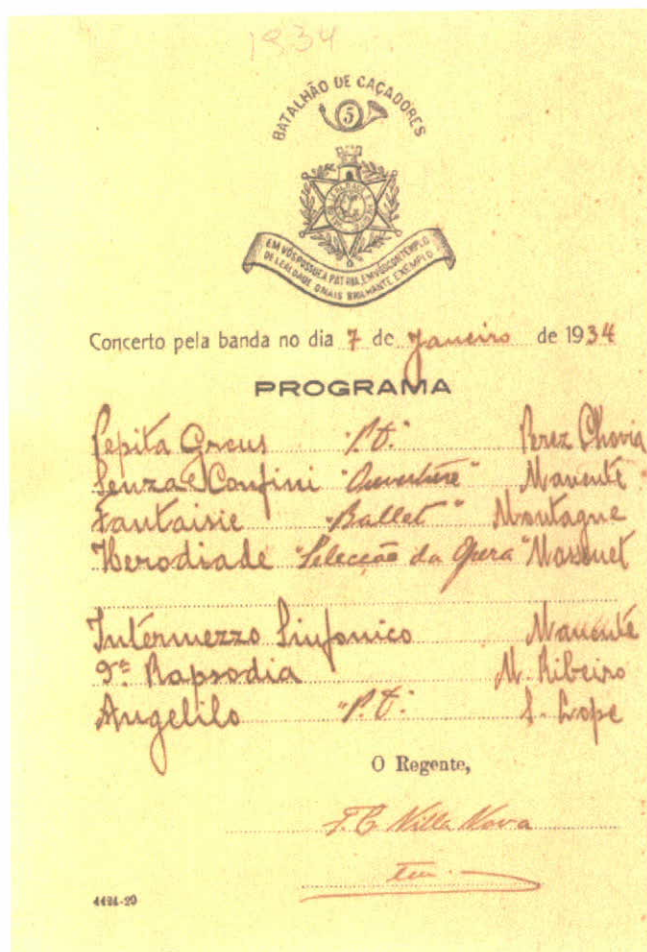 1934
BATALHÃO DE CAÇADORES
5
EM VÓS POSSUE A PATRIA, EM VÓS CONTEMPLO
DE LEALDADE O MAIS BRILHANTE EXEMPLO
Concerto pela banda no dia 7 de Janeiro de 1934
PROGRAMA
Pepita Greus "P.D." Perez Chovia
Senza Confini "Ouverture" Manente
Fantaisie "Ballet" Montagne
Herodiade "Selecção da Opera" Massenet
Intermezzo Sinfonico Manente
9ª Rapsodia M. Ribeiro
Angelilo "P.D." S. Lope
O Regente,
Villa Nova
4424-29